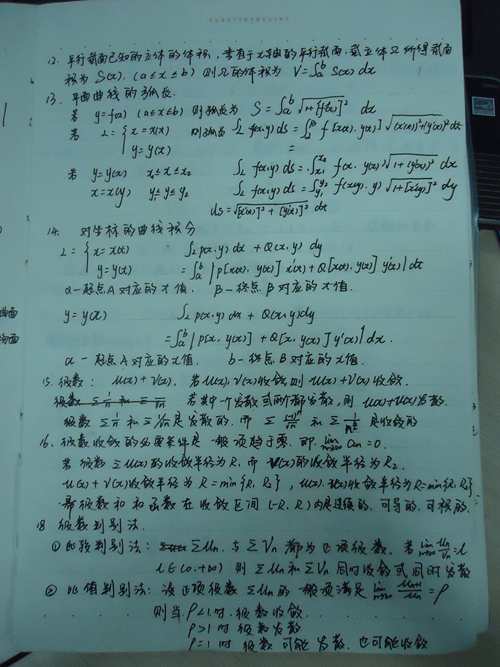 12. 平行截面已知的立体的体积,垂直于x轴的平行截面,截立体Ω所得截面
积为 S(x), (a≤x≤b) 则Ω的体积为 V=∫_a^b S(x)dx
13. 平面曲线的弧长.
若 y=f(x) (a≤x≤b) 则弧长为 S=∫_a^b √(1+[f'(x)]²) dx
若 L={ x=x(t) 则弧长 ∫_L f(x,y)ds=∫_α^β f[x(t),y(t)]√(x'(t))²+(y'(t))² dt
y=y(t) =
若 y=y(x) x₁≤x≤x₂ ∫_L f(x,y)ds=∫_{x₁}^{x₂} f(x,y(x))√(1+[y'(x)]²) dx
x=x(y) y₁≤y≤y₂ ∫_L f(x,y)ds=∫_{y₁}^{y₂} f(x(y),y)√(1+[x'(y)]²) dy
ds=√([x'(t)]²+[y'(t)]²) dt
14. 对坐标的曲线积分
L={ x=x(t) ∫_L P(x,y)dx+Q(x,y)dy
y=y(t) =∫_α^β {P[x(t),y(t)]x'(t)+Q[x(t),y(t)]y'(t)}dt
α-起点A对应的t值. β-终点B对应的t值.
y=y(x) ∫_L P(x,y)dx+Q(x,y)dy
=∫_a^b {P[x,y(x)]+Q[x,y(x)]y'(x)}dx.
a-起点A对应的x值. b-终点B对应的x值.
15. 级数: u(x)+v(x). 若u(x),v(x)收敛则u(x)+v(x)收敛.
若其中一个发散或两个都发散,则u(x)+v(x)发散.
级数 Σ1/n 和 Σ1/√n 是发散的. 而 Σ 和 Σ 是收敛的
16. 级数收敛的必要条件是一般项趋于零. 即 lim_{n→∞} aₙ=0.
若级数Σu(x)的收敛半径为R₁ 而 v(x)的收敛半径为R₂.
u(x)+v(x)收敛半径为R=min{R₁,R₂}, u(x)·v(x)收敛半径为R=min{R₁,R₂}
幂级数和和函数在收敛区间(-R,R)内是连续的.可导的.可积的.
18 级数判别法.
① 比较判别法: Σuₙ与Σvₙ都为正项级数. 若 lim_{n→∞} uₙ/vₙ=l
l∈(0,+∞) 则Σuₙ和Σvₙ同时收敛或同时发散
② 比值判别法: 设正项级数Σuₙ的一般项满足 lim_{n→∞} uₙ₊₁/uₙ=ρ
则当ρ<1时.级数收敛.
ρ>1时 级数发散
ρ=1时 级数可能发散.也可能收敛